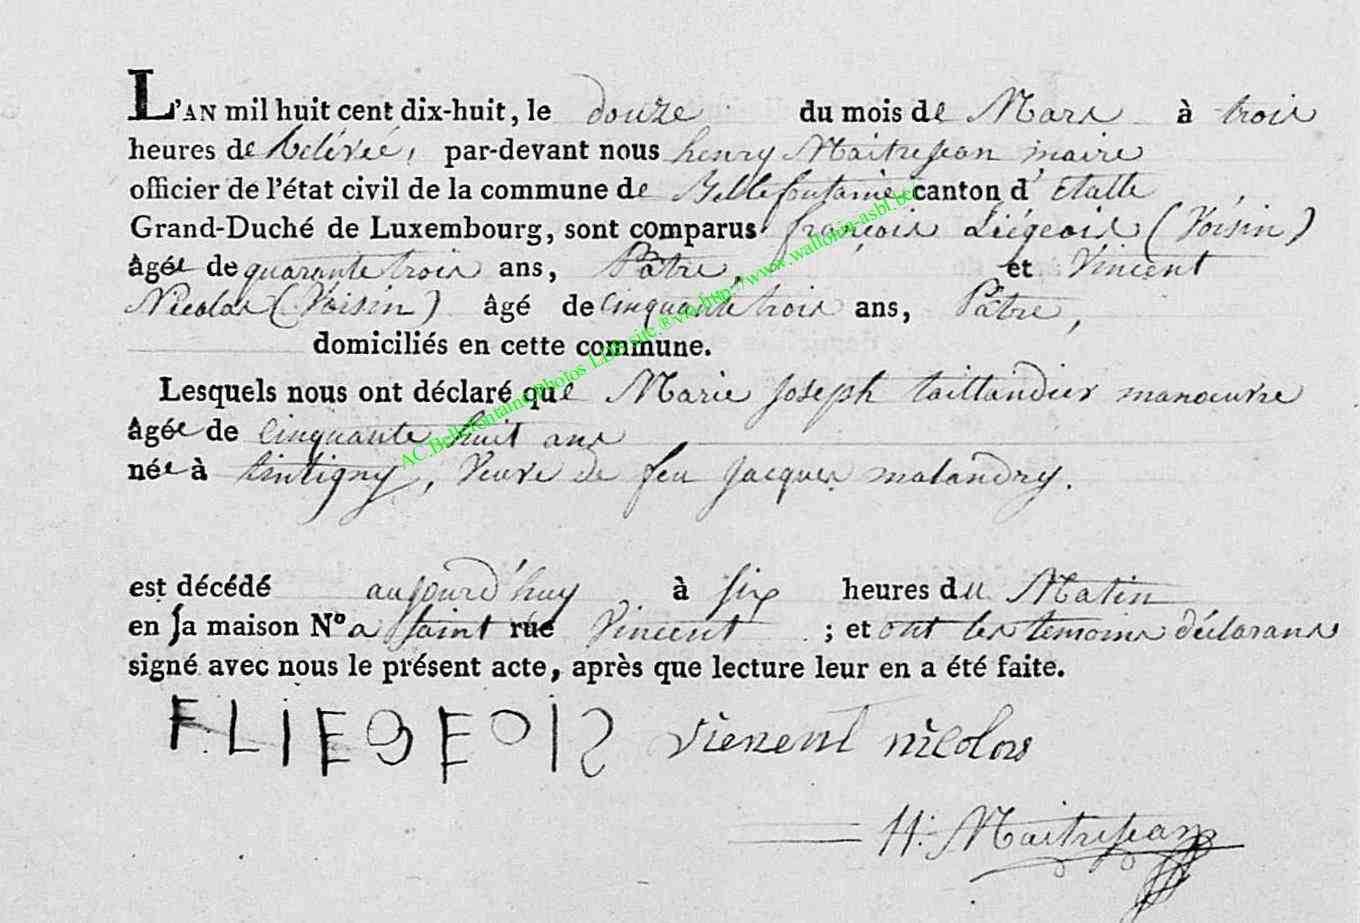 L'AN mil huit cent dix-huit, le douze du mois de Mars à trois
heures de Relévée, par-devant nous henry Maitrejean maire
officier de l'état civil de la commune de Bellefontaine canton d'Etalle
Grand-Duché de Luxembourg, sont comparus françois Liégeois (Voisin)
âgés de quarante trois ans, Pâtre, et Vincent
Nicolas (Voisin) âgé de cinquante trois ans, Pâtre,
domiciliés en cette commune.
Lesquels nous ont déclaré que Marie joseph taillandier manœuvre
âgée de cinquante huit ans
née à tintigny, Veuve de feu jacques malandry.
est décédé aujourd'huy à six heures du Matin
en sa maison N° a saint rue Vincent ; et ont les temoins déclarans
signé avec nous le présent acte, après que lecture leur en a été faite.
F. LIEGEOIS vienent nicolas
H. Maitrejean
AC.Bellefontaine Photos LDB site ® vcr http://www.wallonia-asbl.be/